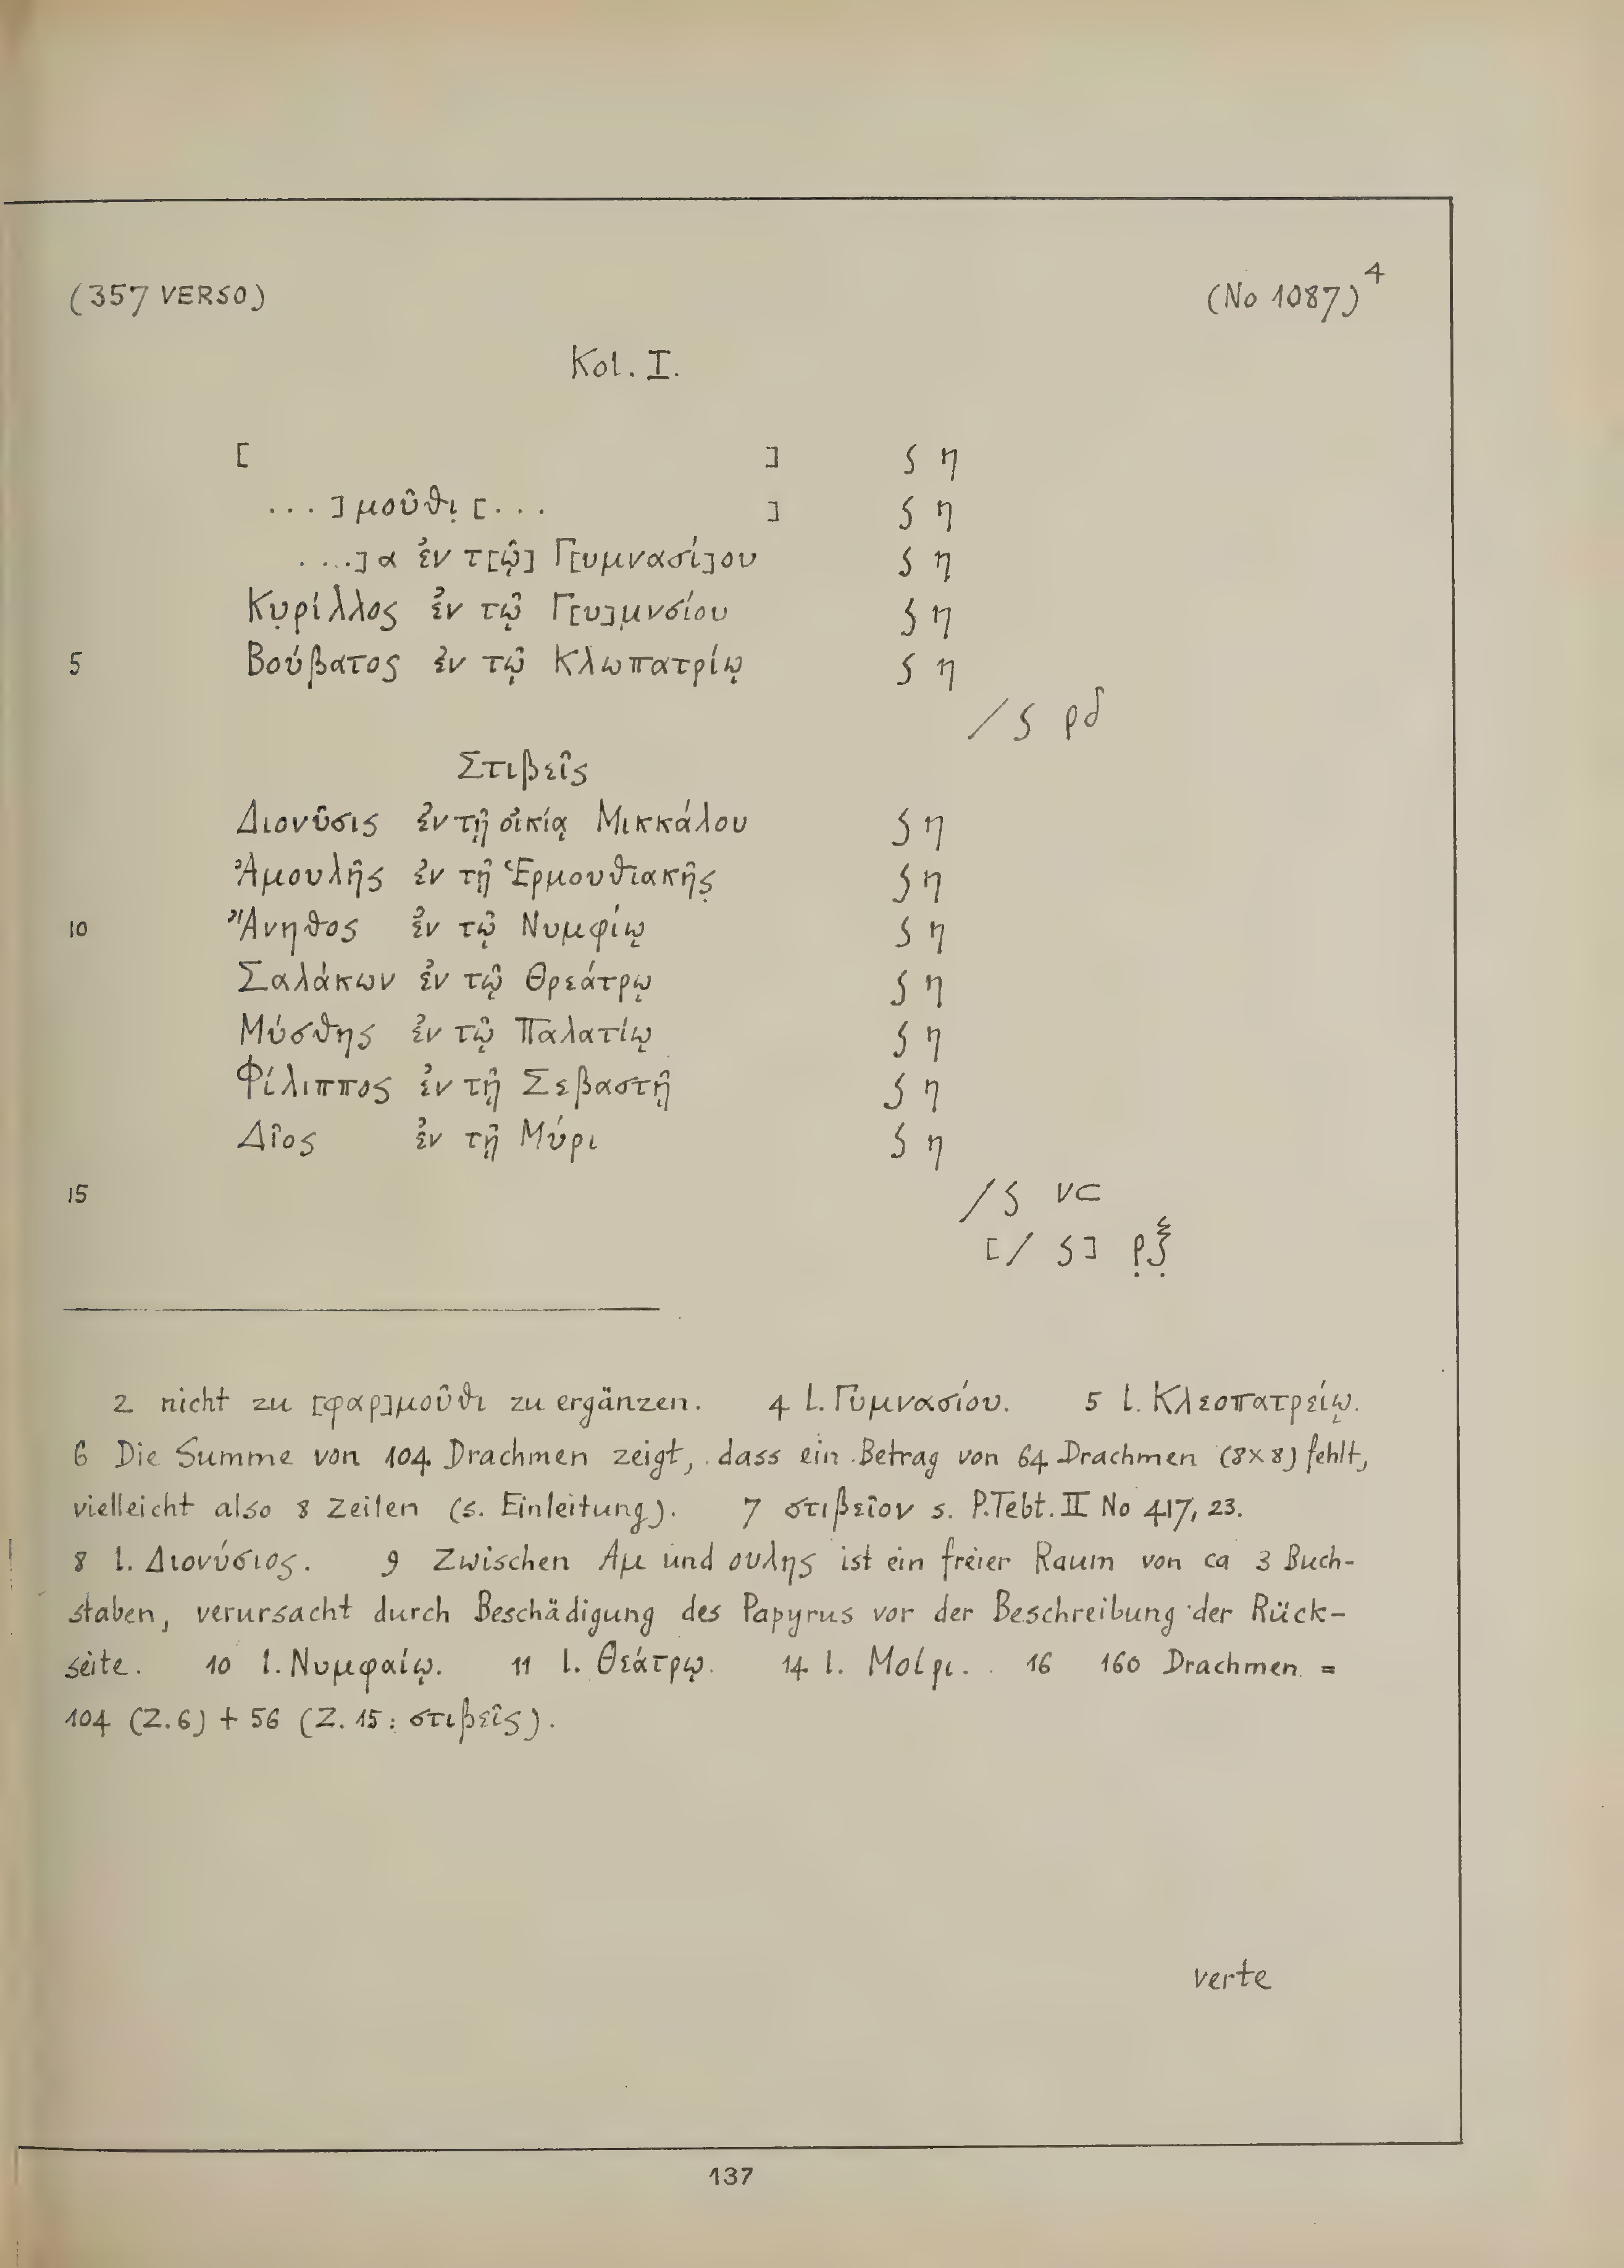 (357 VERSO) (No 1087)⁴
Kol. I.
[ ] ʃ η
. . . ] μοῦθι̣ [ . . . ] ʃ η
. . . . ] α ἐν τ[ῷ] Γ[υμνασί]ου ʃ η
Κυ̣ρίλλος ἐν τῷ Γ[υ]μνσίου ʃ η
5 Βούβατος ἐν τῷ Κλωπατρίῳ ʃ η
/ ʃ ρδ
Στιβεῖς
Διονῦσις ἐν τῇ οἰκίᾳ Μικκάλου ʃ η
Ἀμουλῆς ἐν τῇ Ἑρμουθιακῆς̣ ʃ η
10 Ἄνηθος ἐν τῷ Νυμφίῳ ʃ η
Σαλάκων ἐν τῷ Θρεάτρῳ ʃ η
Μύσθης ἐν τῷ Παλατίῳ ʃ η
Φίλιππος ἐν τῇ Σεβαστῇ ʃ η
Δῖος ἐν τῇ Μύρι ʃ η
15 / ʃ νϲ
[/ ʃ] ρ̣ξ̣
2 nicht zu [φαρ]μοῦθι zu ergänzen. 4 l. Γυμνασίου. 5 l. Κλεοπατρείῳ.
6 Die Summe von 104 Drachmen zeigt, dass ein Betrag von 64 Drachmen (8x8) fehlt,
vielleicht also 8 Zeilen (s. Einleitung). 7 στιβεῖον s. P. Tebt. II No 417, 23.
8 l. Διονύσιος. 9 Zwischen Αμ und ουλης ist ein freier Raum von ca 3 Buch-
staben, verursacht durch Beschädigung des Papyrus vor der Beschreibung der Rück-
seite. 10 l. Νυμφαίῳ. 11 l. Θεάτρῳ. 14 l. Μοίρι. 16 160 Drachmen =
104 (Z. 6) + 56 (Z. 15: στιβεῖς).
verte
137